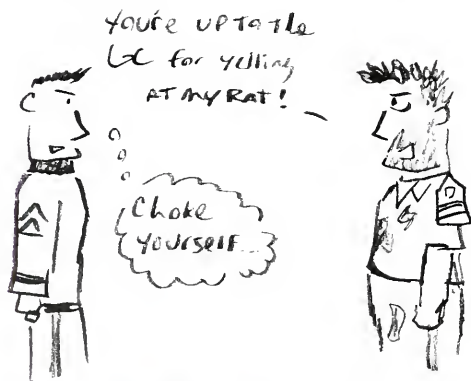 you're up to the
GC for yelling
AT MY RAT!
Choke
yourself...